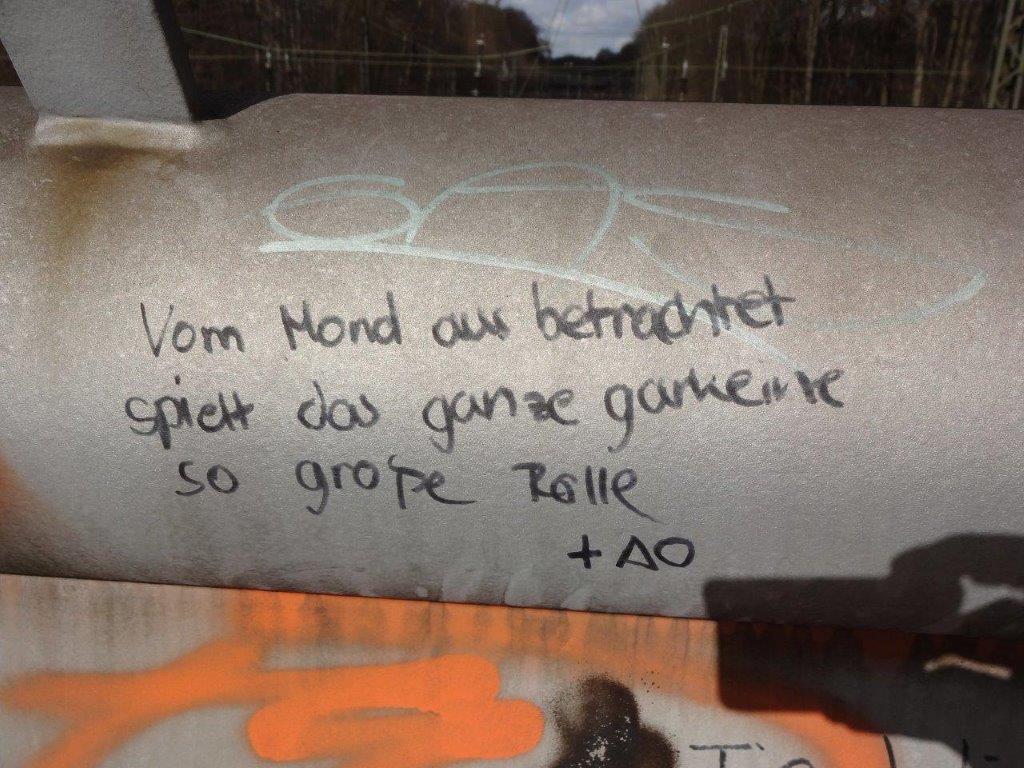 Vom Mond aus betrachtet
spielt das ganze garkeine
so große Rolle
+ΔO